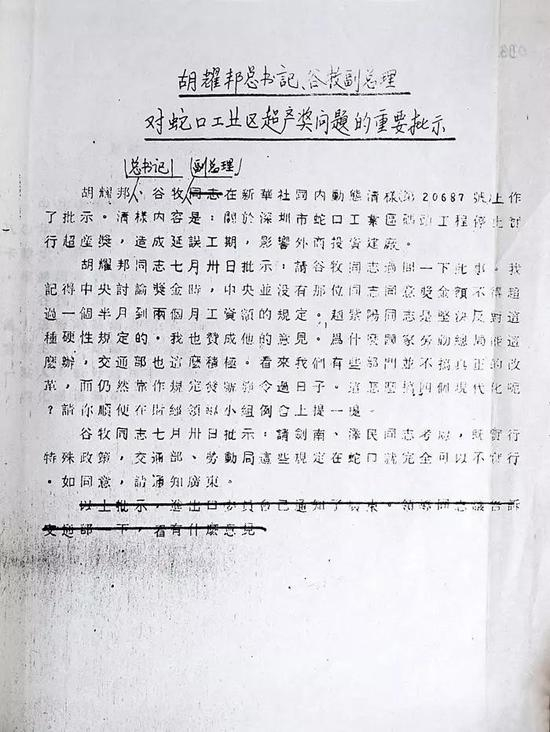 胡耀邦总书记、谷牧副总理
对蛇口工业区超产奖问题的重要批示
总书记 副总理
胡耀邦、谷牧同志在新華社國內動態清樣第20687號上作
了批示。清樣内容是:關於深圳市蛇口工業區碼頭工程停止實
行超産獎,造成延誤工期,影響外商投資建廠。
胡耀邦同志七月卅日批示:請谷牧同志過問一下此事。我
記得中央討論獎金時,中央並没有那位同志同意獎金額不得超
過一個半月到兩個月工資額的規定。趙紫陽同志是堅決反對這
種硬性規定的。我也贊成他的意見。爲什麽國家勞動總局能這
麽辦,交通部也這麽積極。看來我們有些部門並不搞真正的改
革,而仍然靠作規定發號施令過日子。這怎麽搞四個現代化呢
?請你順便在財經領導小組例會上提一提。
谷牧同志七月卅日批示:請劍南、澤民同志考慮,既實行
特殊政策,交通部、勞動局這些規定在蛇口就完全可以不實行
。如同意,請通知廣東。
以上批示,進出口委員會已通知了廣東。領導同志議告訴
交通部一下,看有什麽意見